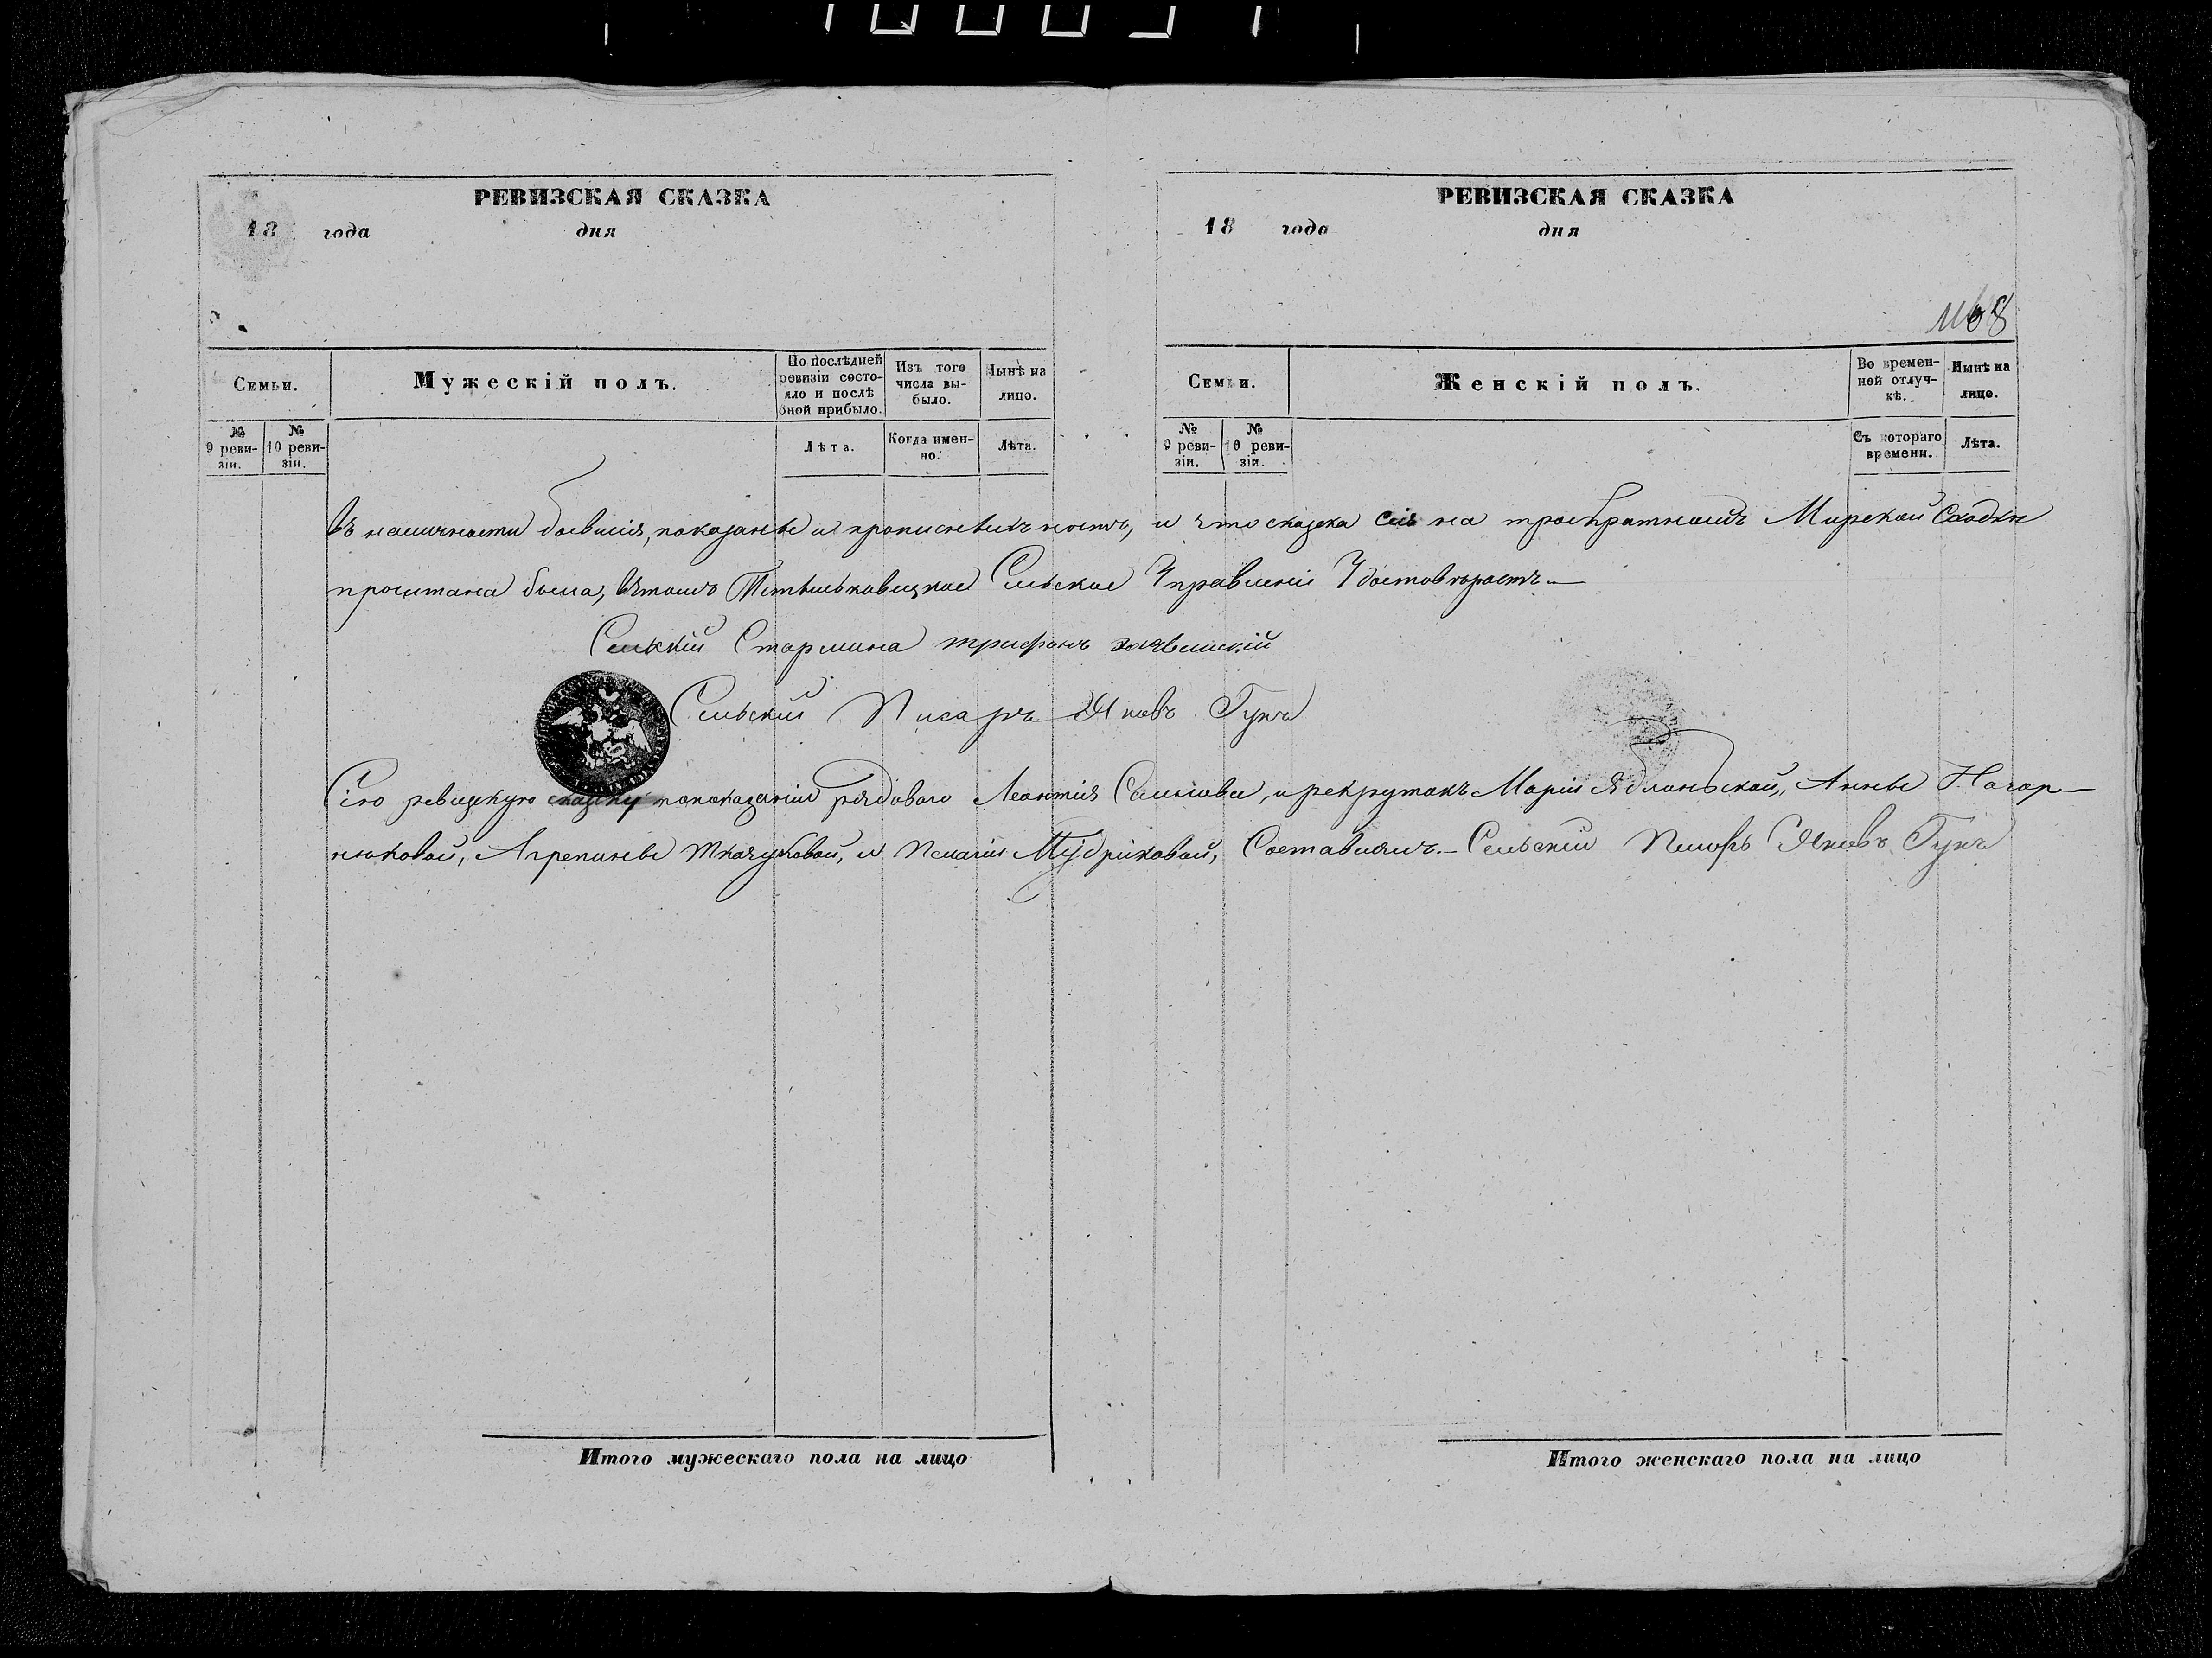 РЕВИЗСКАЯ СКАЗКА
18 года дня
Семьи.
Мужескій полъ.
По послѣдней ревизіи состояло и послѣ оной прибыло.
Изъ того числа выбыло.
Нынѣ на лицо.
№ 9 ревизіи.
№ 10 ревизіи.
Лѣта.
Когда именно.
Лѣта.
РЕВИЗСКАЯ СКАЗКА
18 года дня
1168
Семьи.
Женскій полъ.
Во временной отлучкѣ.
Нынѣ на лицо.
№ 9 ревизіи.
№ 10 ревизіи.
Съ котораго времени.
Лѣта.
въ наличности бывшія, показаны и прописныхъ нѣтъ, и что сказка сія на троекратномъ Мирскомъ Сходкѣ
прочитана была, вѣтомъ Сельское Управленіе Удостовѣряетъ —
Сельскій Старшина трифонъ
Сельскій Писарь Яковъ Гукъ
Сію ревизкую сказку по показанію рядоваго Леонтія и рекрутокъ Маріи Яблоньской, Анны Нагор-
нюковой, Агрепины Ткачуковой, и Пелагіи Мудриковой, Составилъ. — Сельскій Писарь Яковъ Гукъ
Итого мужескаго пола на лицо
Итого женскаго пола на лицо